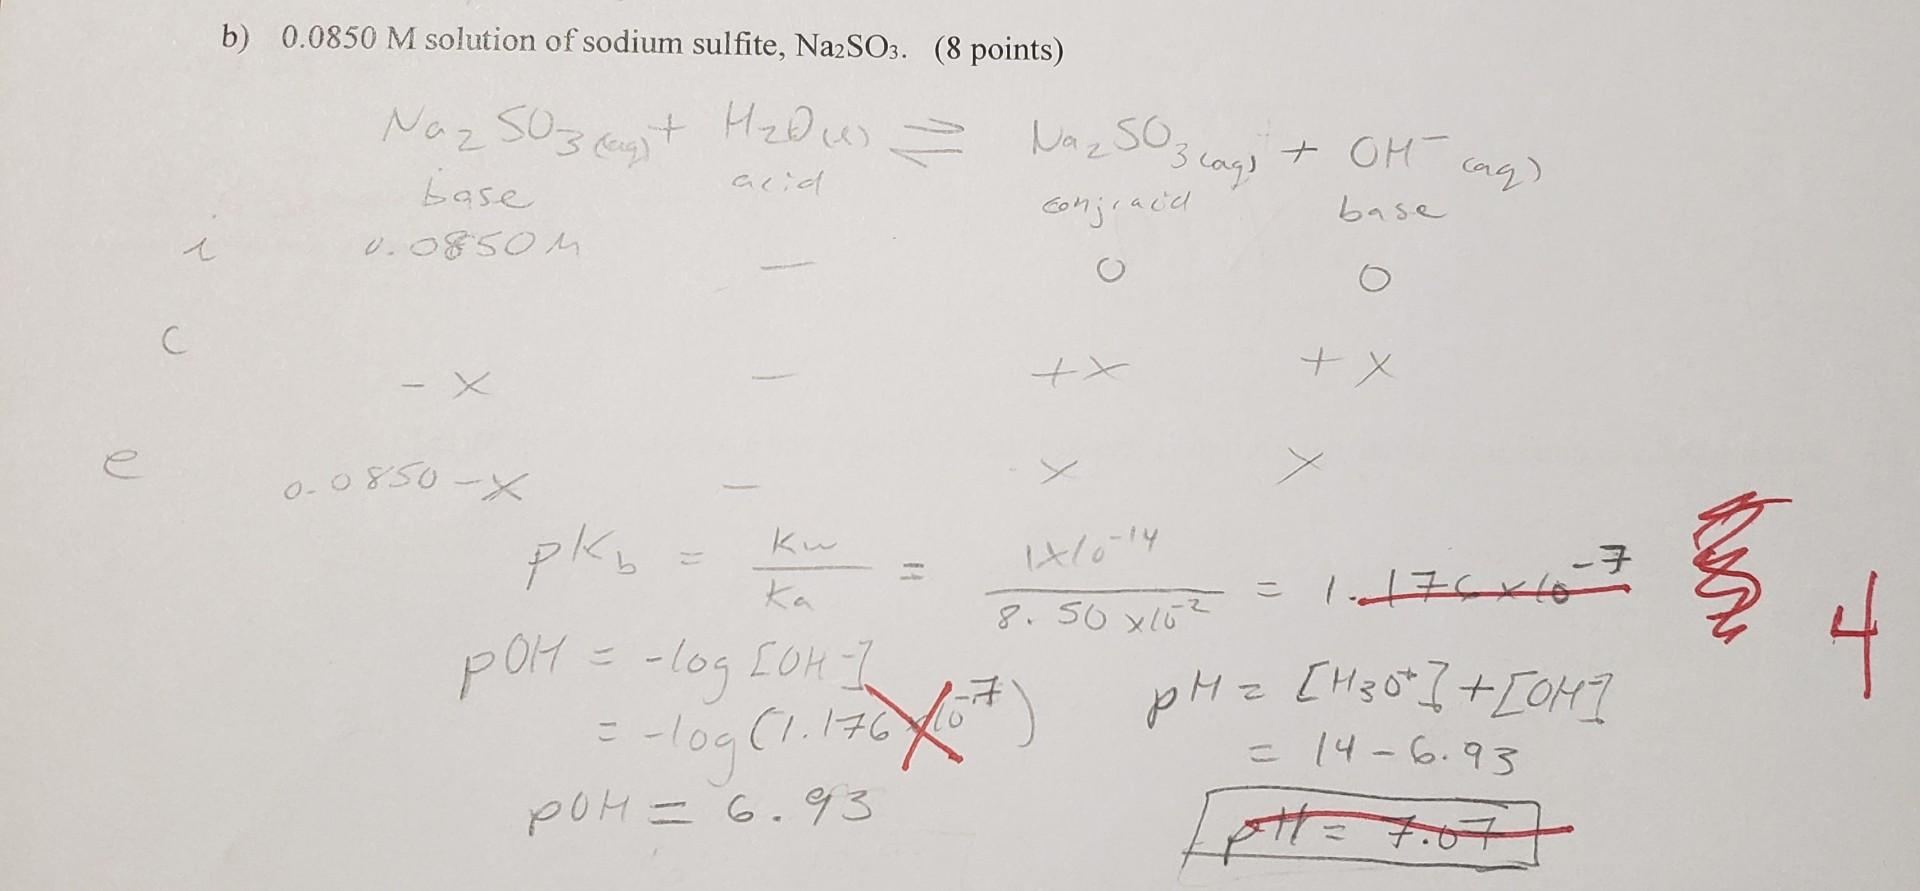 b) 0.0850 M solution of sodium sulfite, Na₂SO₃. (8 points)
Na₂SO₃(aq) + H₂O(l) ⇌ Na₂SO₃(aq) + OH⁻(aq)
base acid conj. acid base
i 0.0850M — 0 0
c -x — +x +x
e 0.0850-x — x x
pKb = Kw/Ka = 1x10⁻¹⁴/8.50x10⁻² = 1.176x10⁻⁷
4
pOH = -log[OH⁻]
= -log(1.176x10⁻⁷)
pOH = 6.93
pH = [H₃O⁺]+[OH⁻]
= 14-6.93
pH = 7.07